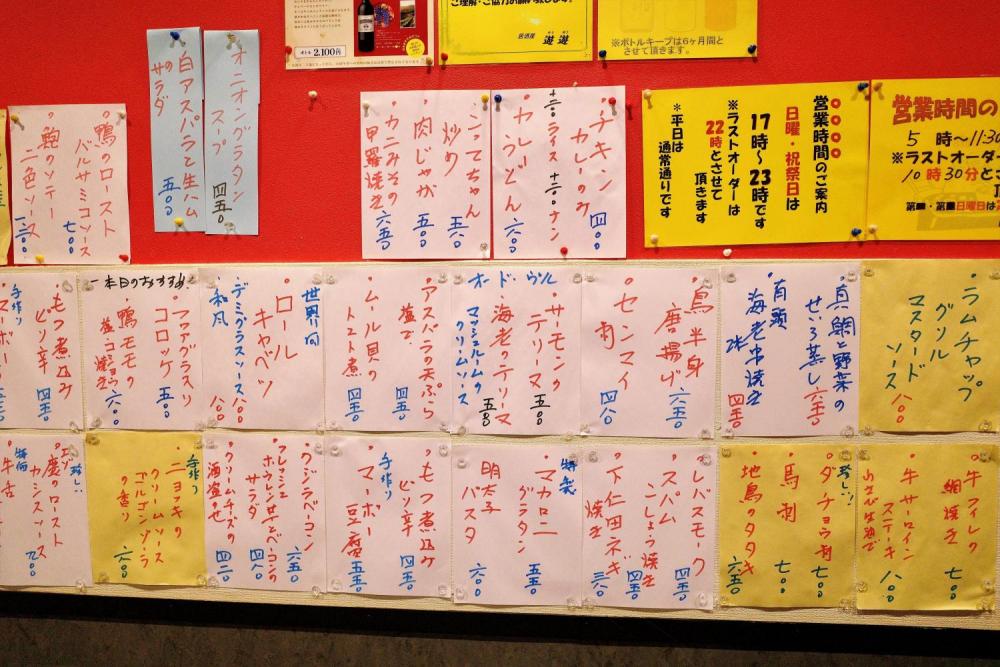 ボトル 2,100円
ご理解・ご協力のお願い致します。
居酒屋 遊遊
※ボトルキープは6ヶ月間と
させて頂きます。
オニオングラタン
スープ 四五〇
白アスパラと生ハム
のサラダ 五〇〇
・鴨のロースト
バルサミコソース
七〇〇
・鮑のソテー
二色ソース
・チキン
カレーのみ 四〇〇
+二〇〇ライス +二〇〇ナン
・カレーうどん 六〇〇
・こってちゃん
炒め 五八〇
・肉じゃが 五〇〇
・カニみその
甲羅焼き 六五〇
営業時間のご案内
日曜・祝祭日は
17時~23時です
※ラストオーダーは
22時とさせて
頂きます
※平日は
通常通りです
営業時間の
5時~11:30
※ラストオーダー
10時30分とさ
・ラムチャップ
グリル
マスタード
ソース 八〇〇
・真鯛と野菜の
せいろ蒸し 六五〇
・有頭
海老串焼き
2本 四五〇
・鳥半身
唐揚げ 六五〇
・センマイ
刺 四八〇
オードヴル
・サーモンの
テリーヌ 五五〇
・海老のテリーヌ
マッシュルームの
クリームソース 五五〇
・アスパラの天ぷら
塩で 四五〇
・ムール貝の
トマト煮 四五〇
世界の
・ロール
キャベツ
・デミグラスソース 八〇〇
・和風 八〇〇
本日のおすすめ!
・フォアグラ入り
コロッケ 五〇〇
・鴨モモの
塩コショウ焼き 六〇〇
・もつ煮込み
ピリ辛 四五〇
手作り
・マーボー
・牛フィレの
網焼き 七〇〇
・牛サーロイン
ステーキ
わさび生油で 八〇〇
珍し!!
・ダチョウ刺 七〇〇
・馬刺 七〇〇
・地鳥のタタキ 六五〇
・レバスモーク 四五〇
・スパム
こしょう焼き 四五〇
・下仁田ネギ
焼き 三八〇
特製
・マカロニ
グラタン 五五〇
・明太子
パスタ 六〇〇
・もつ煮込み
ピリ辛 四五〇
手作り
・マーボー
豆腐 五五〇
・タンドラベーコン 六五〇
・フレッシュ
ホウレン草とベーコンの
サラダ 四八〇
・クリームチーズの
酒盗のせ 四二〇
手作り
・ニョッキの
クリームソース
ゴルゴンゾーラ
の香り 六〇〇
珍し!!
エゾ
・鹿のロースト
カシスソース 九〇〇
特価
・牛舌